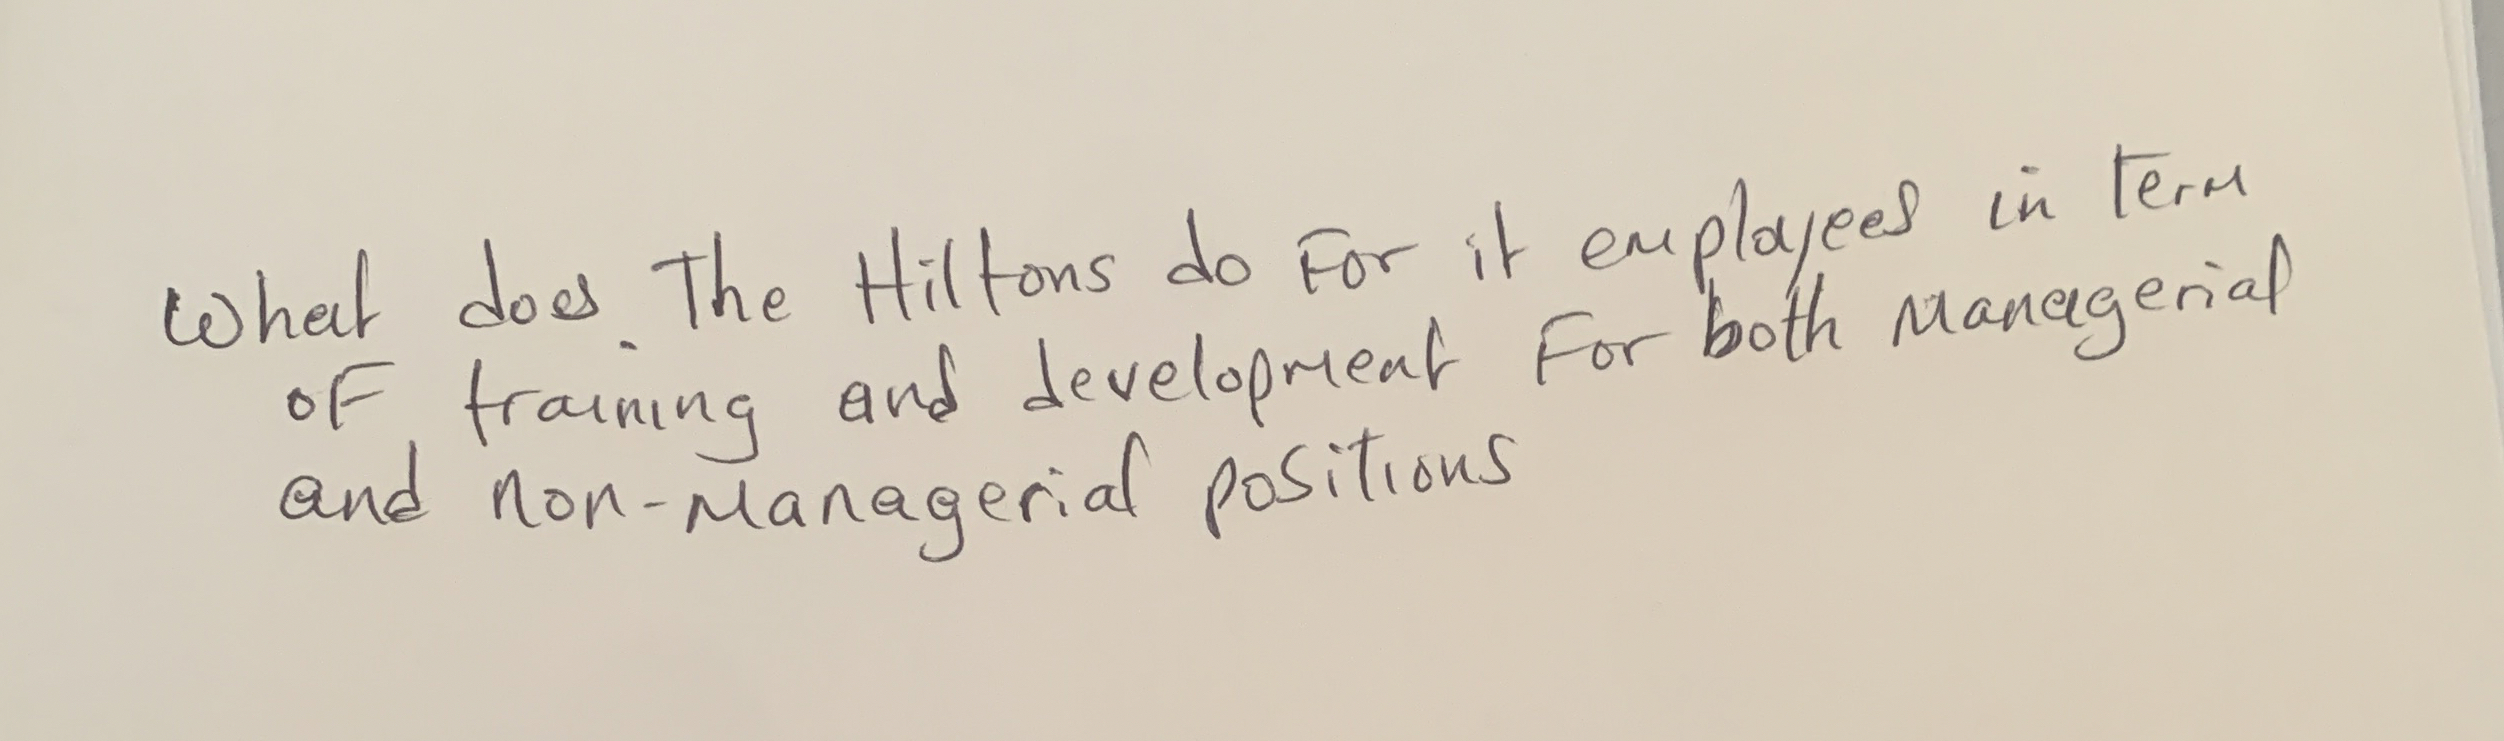 What does The Hiltons do For it employees in Term
of training and development For both Managerial
and non-Managerial positions